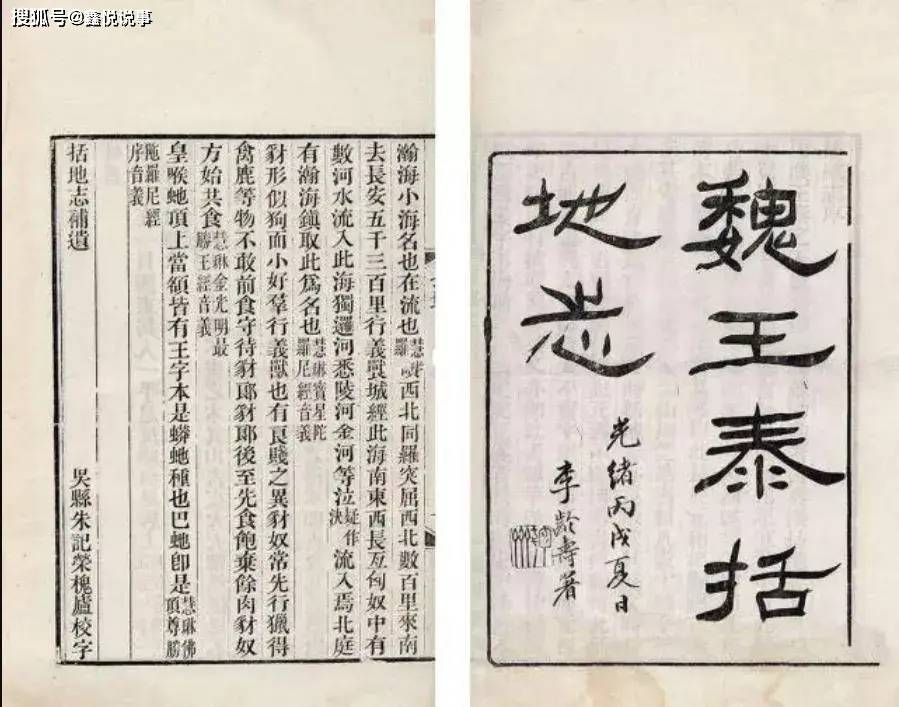 搜狐号@鑫悦说事
魏王泰括
地志
光緒丙戌夏日
李齡壽著
瀚海小海名也在流也西北同羅突屈西北數百里來南
去長安五千三百里行義城經此海南東西長亙匈奴中有
數河水流入此海獨邏河悉陵河金河等泣疑作決流入焉北庭
有瀚海鎮取此爲名也慧琳寶星陀羅尼經音義
豺形似狗而小好羣行義獸也有良賤之異豺奴常先行獵得
禽鹿等物不敢前食守待豺郎豺郎後至先食飽棄餘肉豺奴
方始共食慧琳金光明最勝王經音義
皇喉虵頂上當額皆有王字本是蟒虵種也巴虵卽是慧琳佛頂尊勝
陁羅尼經序音義
括地志補遺 吳縣朱記榮槐廬校字